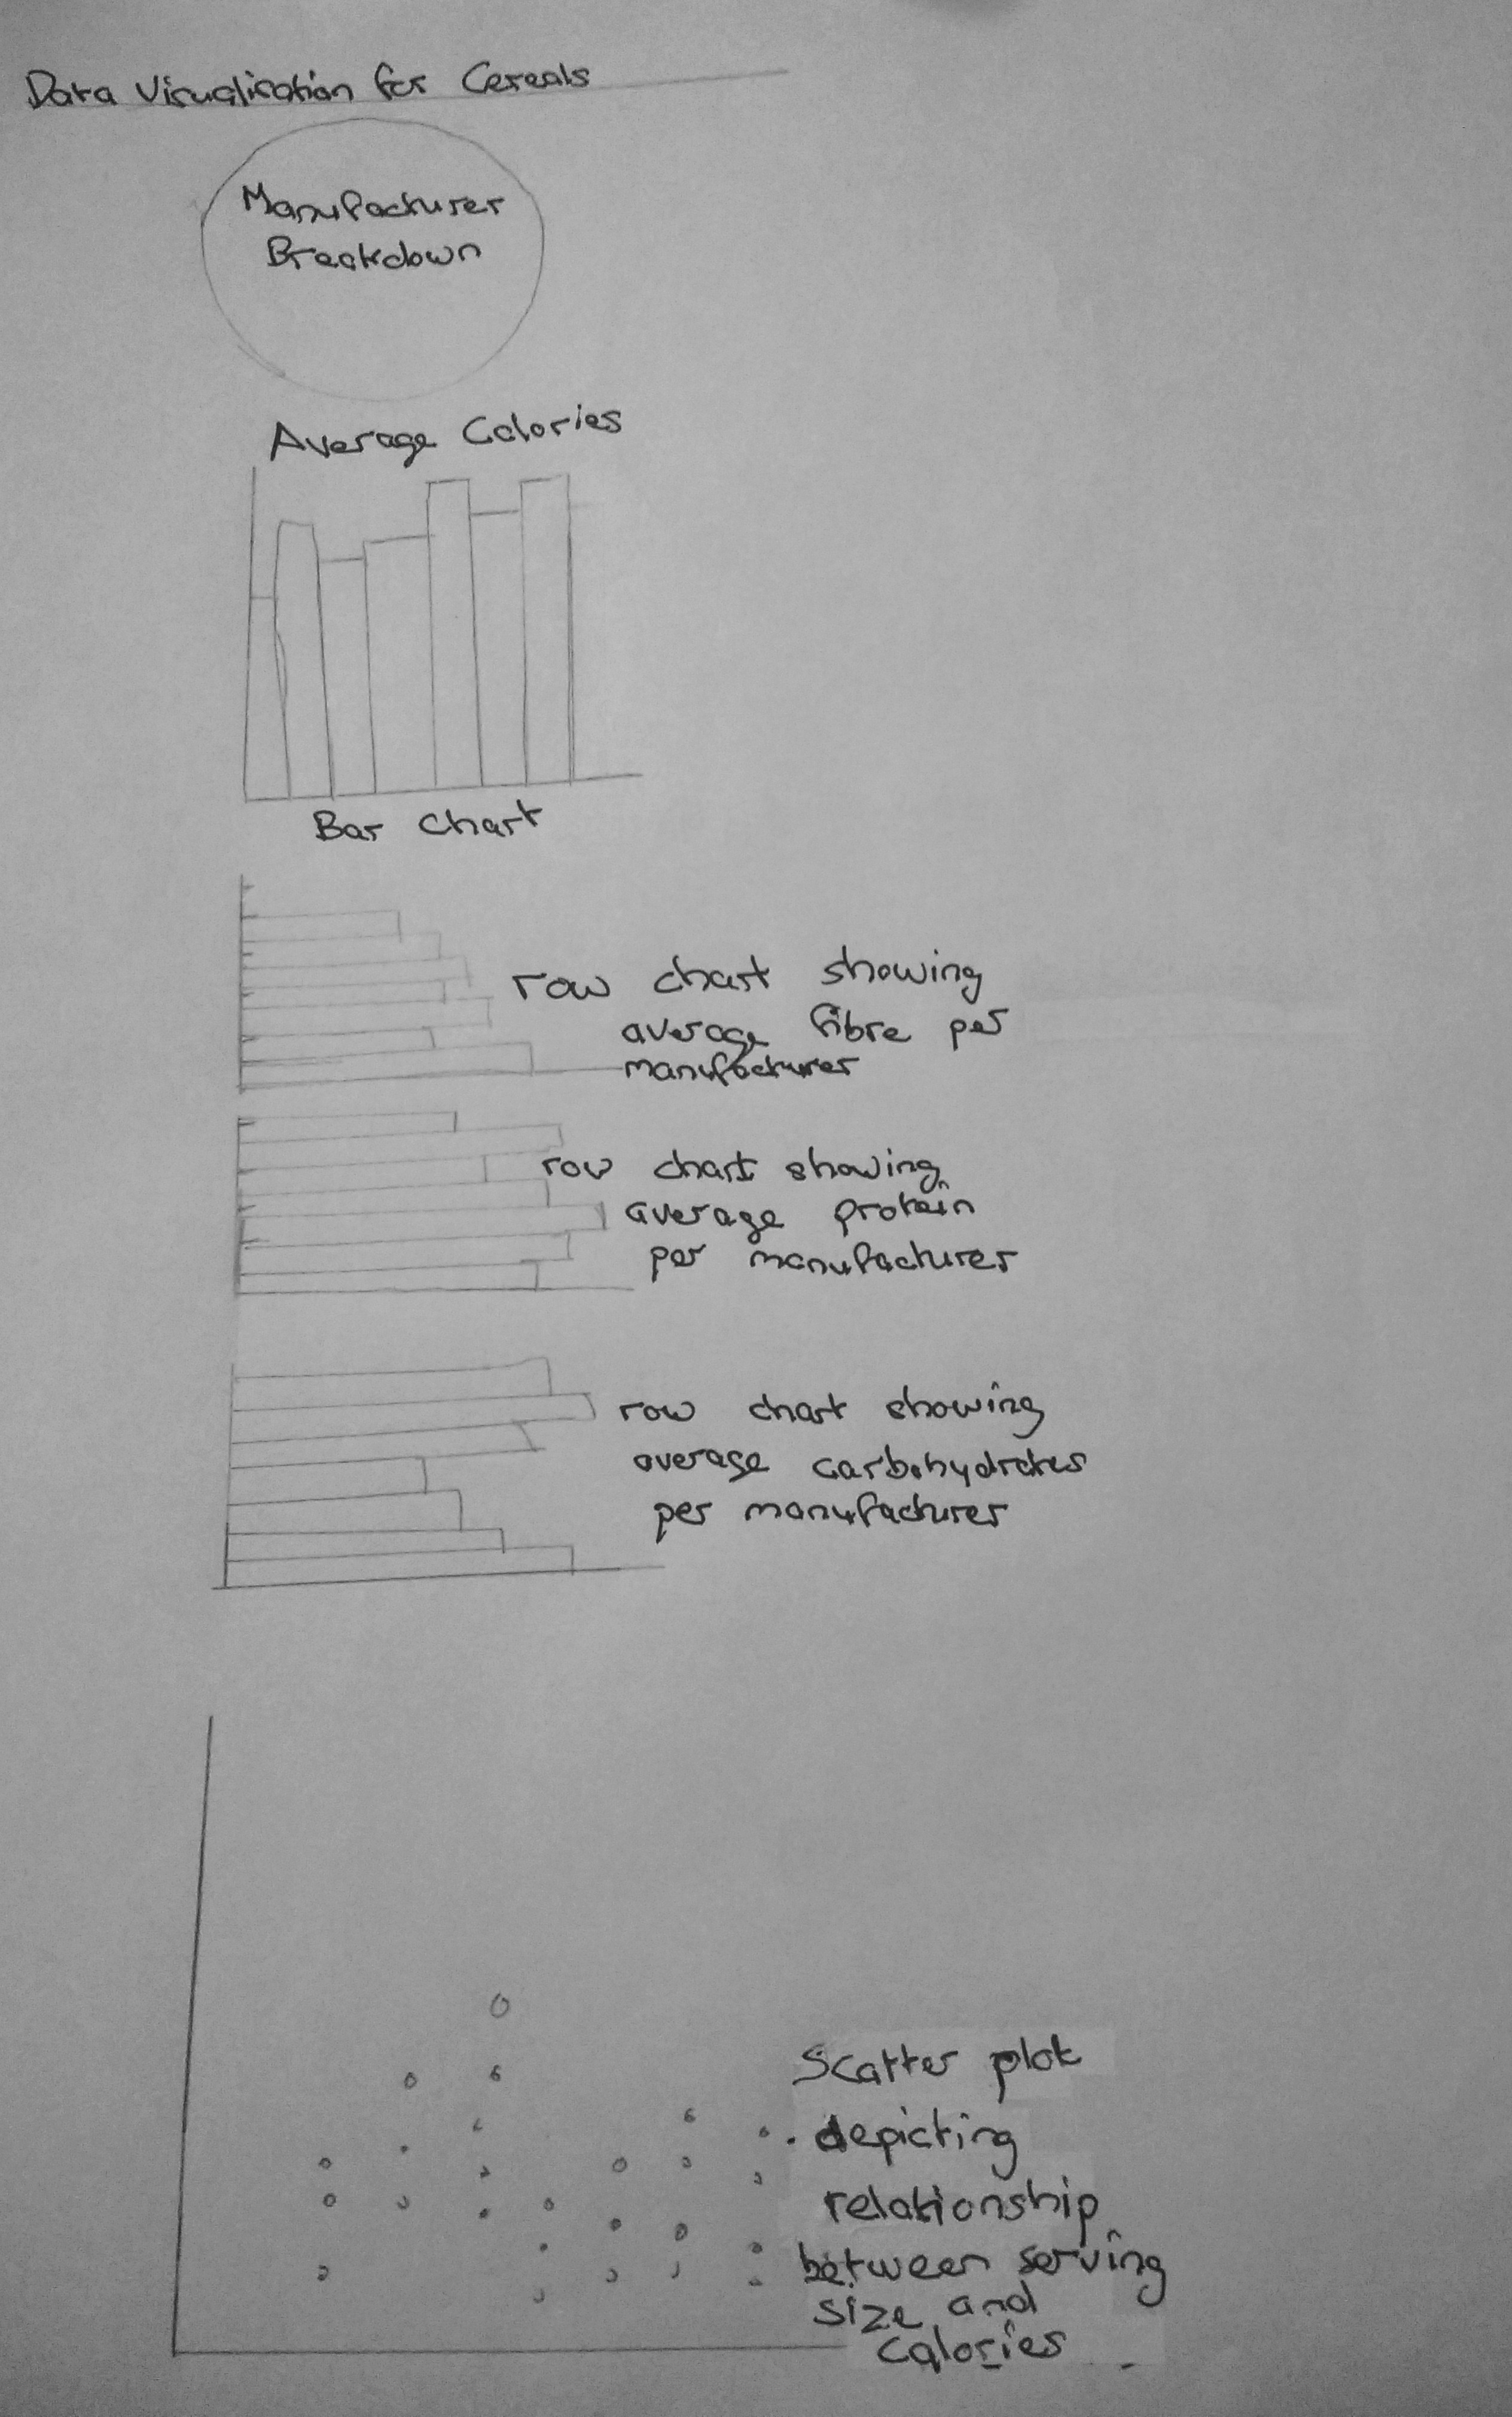 Data Visualisation for Cereals
Manufacturer
Breakdown
Average Calories
Bar Chart
row chart showing
average fibre per
manufacturer
row chart showing
average protein
per manufacturer
row chart showing
average carbohydrates
per manufacturer
Scatter plot
depicting
relationship
between serving
size and
calories